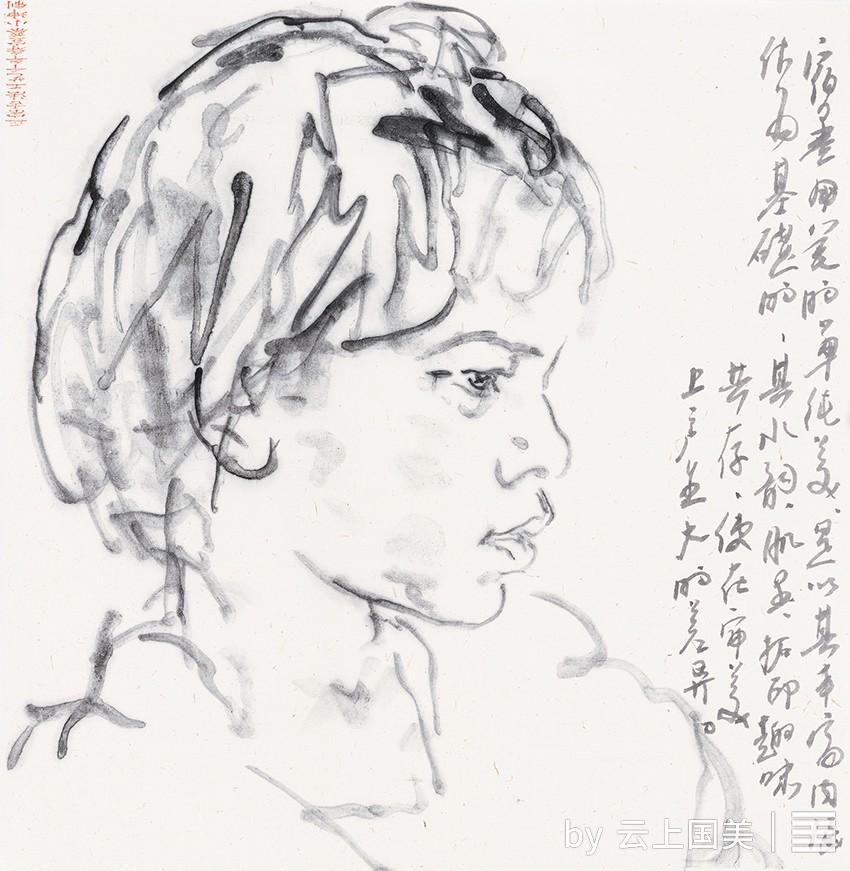 宿墨用笔的单纯美、是以其丰富内
作为基础的、其水韵、肌墨、拓印趣味
共存、使在审美
上产生大的差异。
by 云上国美